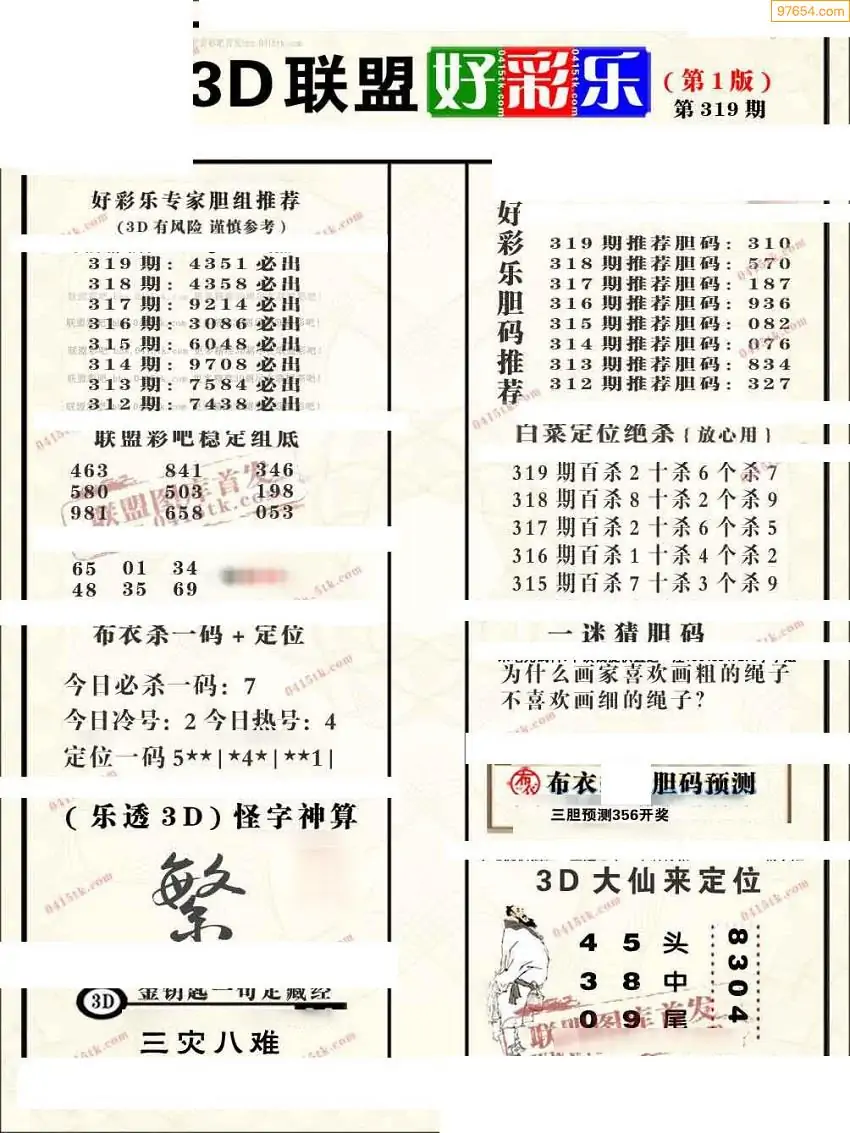 97654.com
3D联盟好彩乐
(第1版)
第319期
好彩乐专家胆组推荐
(3D有风险 谨慎参考)
319期: 4351必出
318期: 4358必出
317期: 9214必出
316期: 3086必出
315期: 6048必出
314期: 9708必出
313期: 7584必出
312期: 7438必出
联盟彩吧稳定组底
463 841 346
580 503 198
981 658 053
65 01 34
48 35 69
布衣杀一码+定位
今日必杀一码: 7
今日冷号: 2 今日热号: 4
定位一码 5**|*4*|**1|
(乐透3D)怪字神算
繁
3D 金钥匙一句定藏经
三灾八难
好彩乐胆码推荐
319期推荐胆码: 310
318期推荐胆码: 570
317期推荐胆码: 187
316期推荐胆码: 936
315期推荐胆码: 082
314期推荐胆码: 076
313期推荐胆码: 834
312期推荐胆码: 327
白菜定位绝杀{放心用}
319期百杀2十杀6个杀7
318期百杀8十杀2个杀9
317期百杀2十杀6个杀5
316期百杀1十杀4个杀2
315期百杀7十杀3个杀9
一迷猜胆码
为什么画家喜欢画粗的绳子
不喜欢画细的绳子?
布衣 胆码预测
三胆预测356开奖
3D大仙来定位
4 5 头
3 8 中
0 9 尾
8304
联盟图库首发
0415tk.com